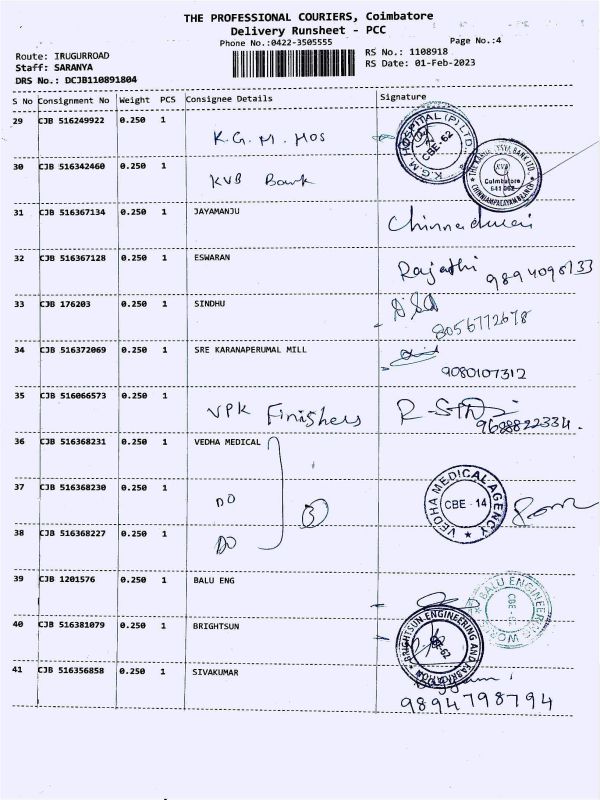 THE PROFESSIONAL COURIERS, Coimbatore
Delivery Runsheet - PCC
Phone No.:0422-3505555
Page No.:4
Route: IRUGURROAD
RS No.: 1108918
Staff: SARANYA
RS Date: 01-Feb-2023
DRS No.: DCJB110891804
S No Consignment No Weight PCS Consignee Details Signature
29 CJB 516249922 0.250 1 K.G.M. HOS
K.G.M. HOSPITAL (P) LTD. CBE-62
30 CJB 516342460 0.250 1 KVB Bank
Coimbatore 641 062
CHINNIAMPALAYAM BRANCH
31 CJB 516367134 0.250 1 JAYAMANJU Chinnadurai
32 CJB 516367128 0.250 1 ESWARAN Rajathi
33 CJB 176203 0.250 1 SINDHU
8056772678
34 CJB 516372069 0.250 1 SRE KARANAPERUMAL MILL
9080107312
35 CJB 516066573 0.250 1 VPK Finishers
9688822334.
36 CJB 516368231 0.250 1 VEDHA MEDICAL
37 CJB 516368230 0.250 1 DO
3
VEDHA MEDICAL AGENCY CBE - 14
38 CJB 516368227 0.250 1 DO
39 CJB 1201576 0.250 1 BALU ENG
BALU ENGINEERING WORKS
40 CJB 516381079 0.250 1 BRIGHTSUN
BRIGHTSUN ENGINEERING AND FABRICATION
41 CJB 516356858 0.250 1 SIVAKUMAR
9894798794